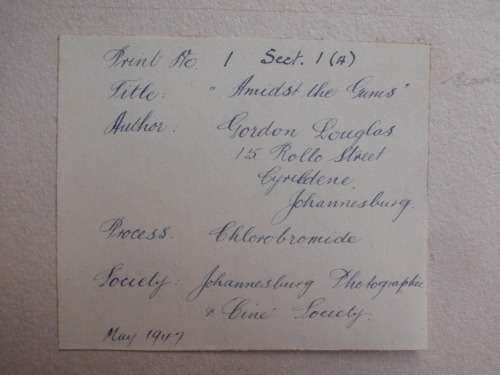 Print No 1 Sect. 1 (A)
Title: "Amidst the Gums"
Author: Gordon Douglas
15 Rollo Street
Cyrildene,
Johannesburg.
Process. Chlorobromide
Society: Johannesburg Photographic
& Ciné Society.
May 1947